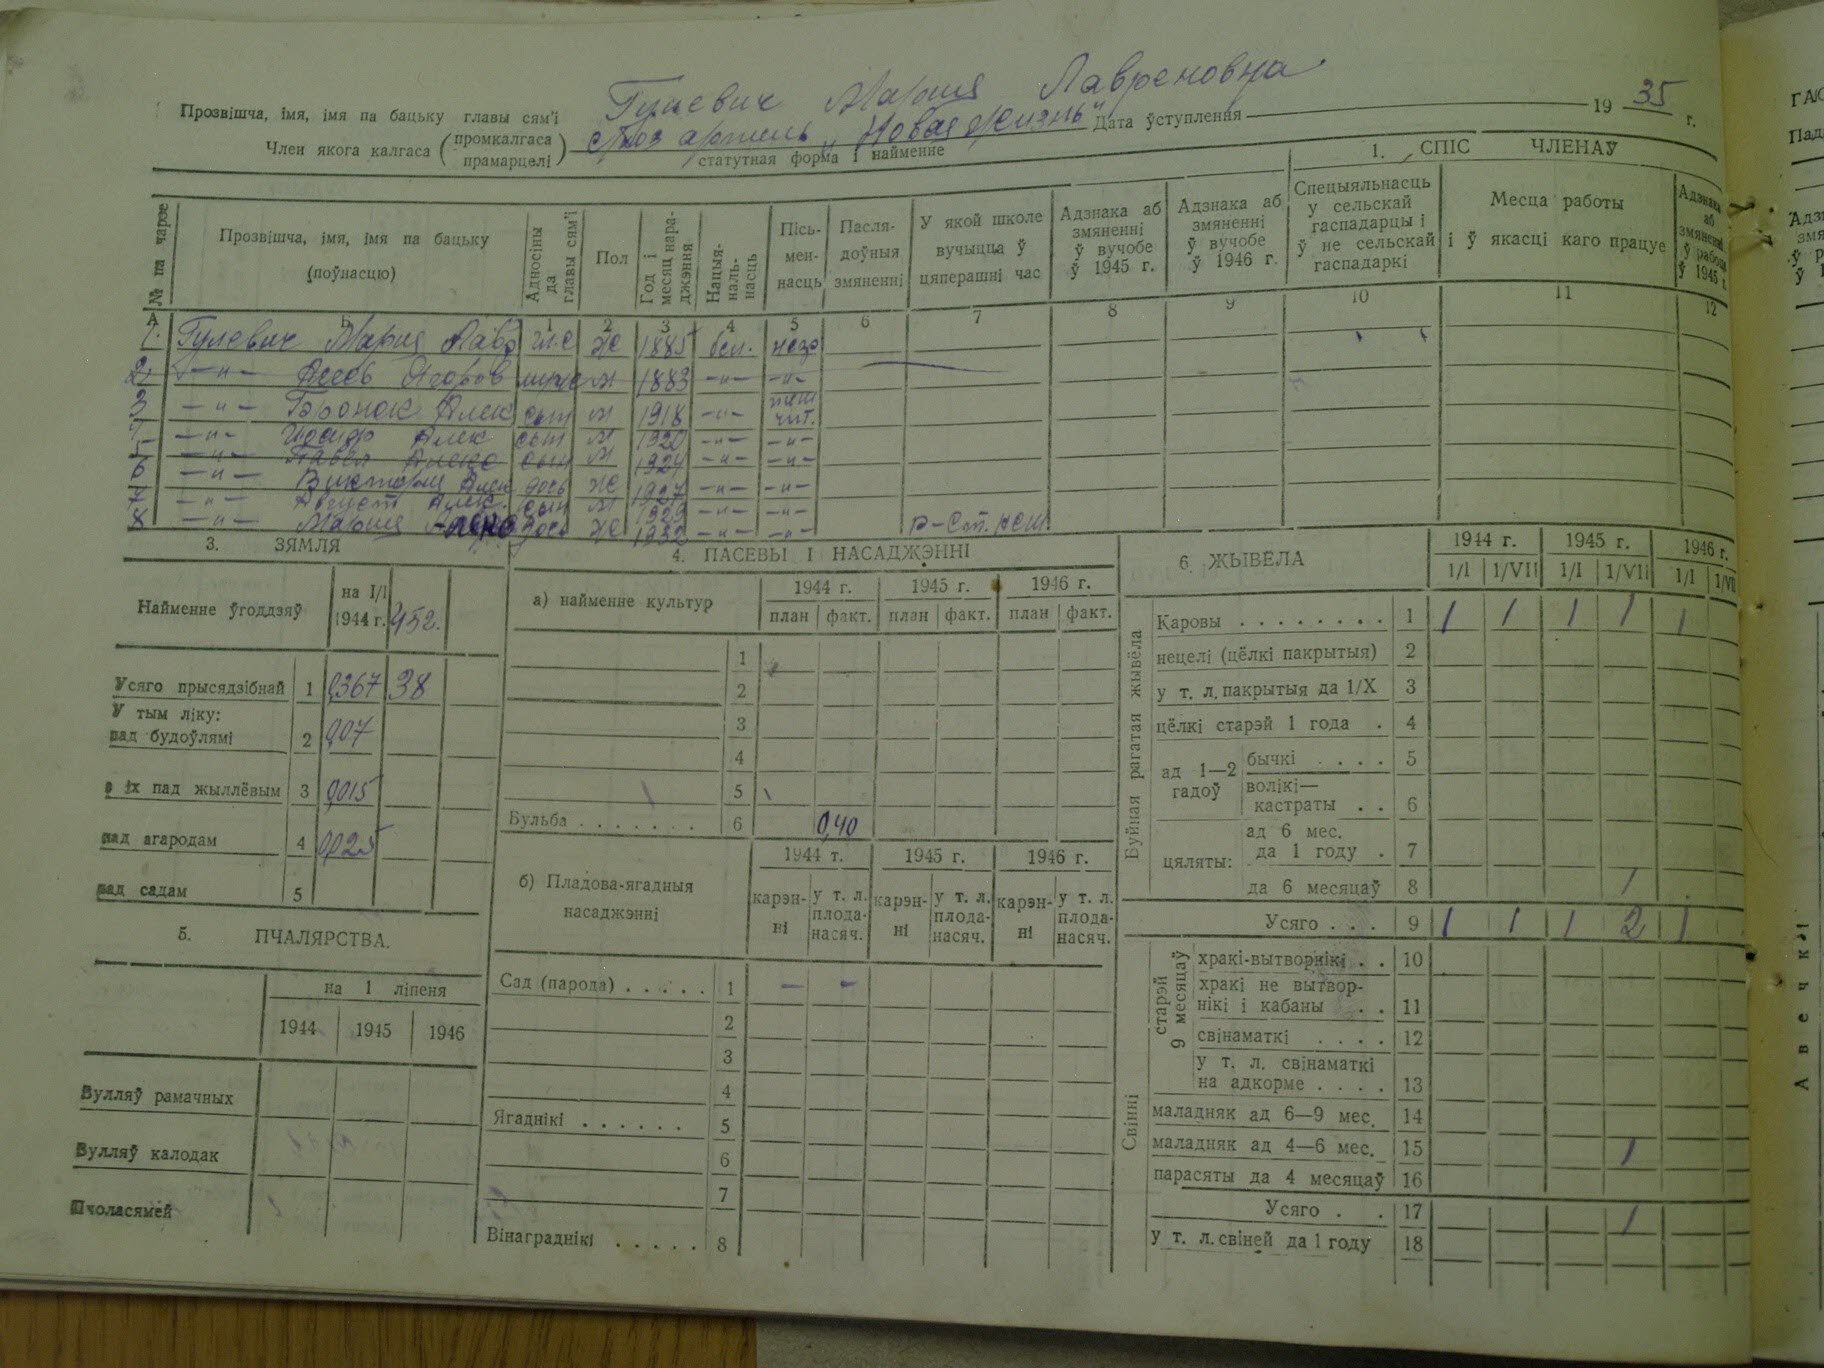 Гулевич Мария Лавреновна
Прозвішча, імя, імя па бацьку главы сям'і
Член якога калгаса (промкалгаса прамарцелі) с/хоз артель „Новая жизнь"
статутная форма і найменне
Дата ўступлення 19 35 г.
1. СПІС ЧЛЕНАЎ
№ па чарзе
Прозвішча, імя, імя па бацьку (поўнасцю)
Адносіны да главы сям'і
Пол
Год і месяц нараджэння
Нацыянальнасць
Пісьменнасць
Паслядоўныя змяненні
У якой школе вучыцца ў цяперашні час
Адзнака аб змяненні ў вучобе ў 1945 г.
Адзнака аб змяненні ў вучобе ў 1946 г.
Спецыяльнасць у сельскай гаспадарцы і ў не сельскай гаспадаркі
Месца работы і ў якасці каго працуе
Адзнака аб змяненні ў рабоце ў 1945 г.
А Б 1 2 3 4 5 6 7 8 9 10 11 12
1. Гулевич Мария Лавр гл.с ж 1885 бел. негр
2 —"— муж м 1883 —"— —"—
3 —"— Алек сын м 1918 —"— чит.
4 —"— Алек сын м 1920 —"— —"—
5 —"— Павел Алекс сын м 1924 —"— —"—
6 —"— Виктория Алек дочь ж 1927 —"— —"—
7 —"— Август Алек. сын м 1929 —"— —"—
8 —"— Мария дочь ж 1932 —"— —"—
3. ЗЯМЛЯ
Найменне ўгоддзяў на 1/I 1944 г. 452.
Усяго прысядзібнай 1 0,367 38
У тым ліку:
пад будоўлямі 2 0,07
з іх пад жыллёвым 3 0,015
пад агародам 4
пад садам 5
5. ПЧАЛЯРСТВА.
на 1 ліпеня
1944 1945 1946
Вулляў рамачных
Вулляў калодак
Пчоласямей
4. ПАСЕВЫ І НАСАДЖЭННІ
а) найменне культур 1944 г. 1945 г. 1946 г.
план факт. план факт. план факт.
1
2
3
4
5
Бульба . . . . . . . 6 0,40
б) Пладова-ягадныя насаджэнні
1944 г. 1945 г. 1946 г.
карэнні у т. л. плоданасяч. карэнні у т. л. плоданасяч. карэнні у т. л. плоданасяч.
Сад (парода) . . . . . 1 – –
2
3
4
Ягаднікі . . . . . . 5
6
7
Вінаграднікі . . . . . 8
6. ЖЫВЁЛА
1944 г. 1945 г. 1946 г.
1/I 1/VII 1/I 1/VII 1/I 1/VII
Буйная рагатая жывёла
Каровы . . . . . . . . 1 1 1 1 1 1
нецелі (цёлкі пакрытыя) 2
у т. л. пакрытыя да 1/X 3
цёлкі старэй 1 года . 4
ад 1—2 гадоў
бычкі . . . . 5
волікі—кастраты . . 6
цяляты:
ад 6 мес. да 1 году . 7
да 6 месяцаў 8 1
Усяго . . . 9 1 1 1 2 1
Свінні
старэй 9 месяцаў
хракі-вытворнікі . . 10
хракі не вытворнікі і кабаны . . 11
свінаматкі . . . . 12
у т. л. свінаматкі на адкорме . . . . 13
маладняк ад 6—9 мес. 14
маладняк ад 4—6 мес. 15 1
парасяты да 4 месяцаў 16
Усяго . . 17 1
у т. л. свіней да 1 году 18
Авечкі